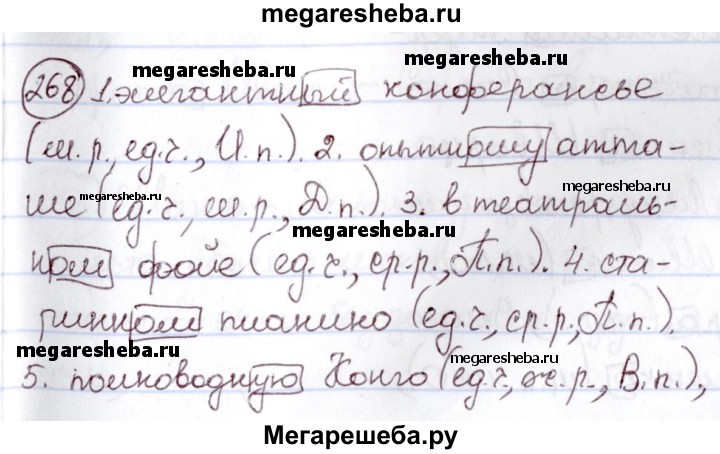 megaresheba.ru
megaresheba.ru megaresheba.ru
268 1. элегантный конферансье
(м.р., ед.ч., И.п.). 2. опытному атта-
megaresheba.ru megaresheba.ru
ше (ед.ч., м.р., Д.п.). 3. в театраль-
megaresheba.ru
ном фойе (ед.ч., ср.р., П.п.). 4. ста-
ринном пианино (ед.ч., ср.р., П.п.).
megaresheba.ru megaresheba.ru
5. полноводную Конго (ед.ч., ж.р., В.п.),
Мегарешеба.ру